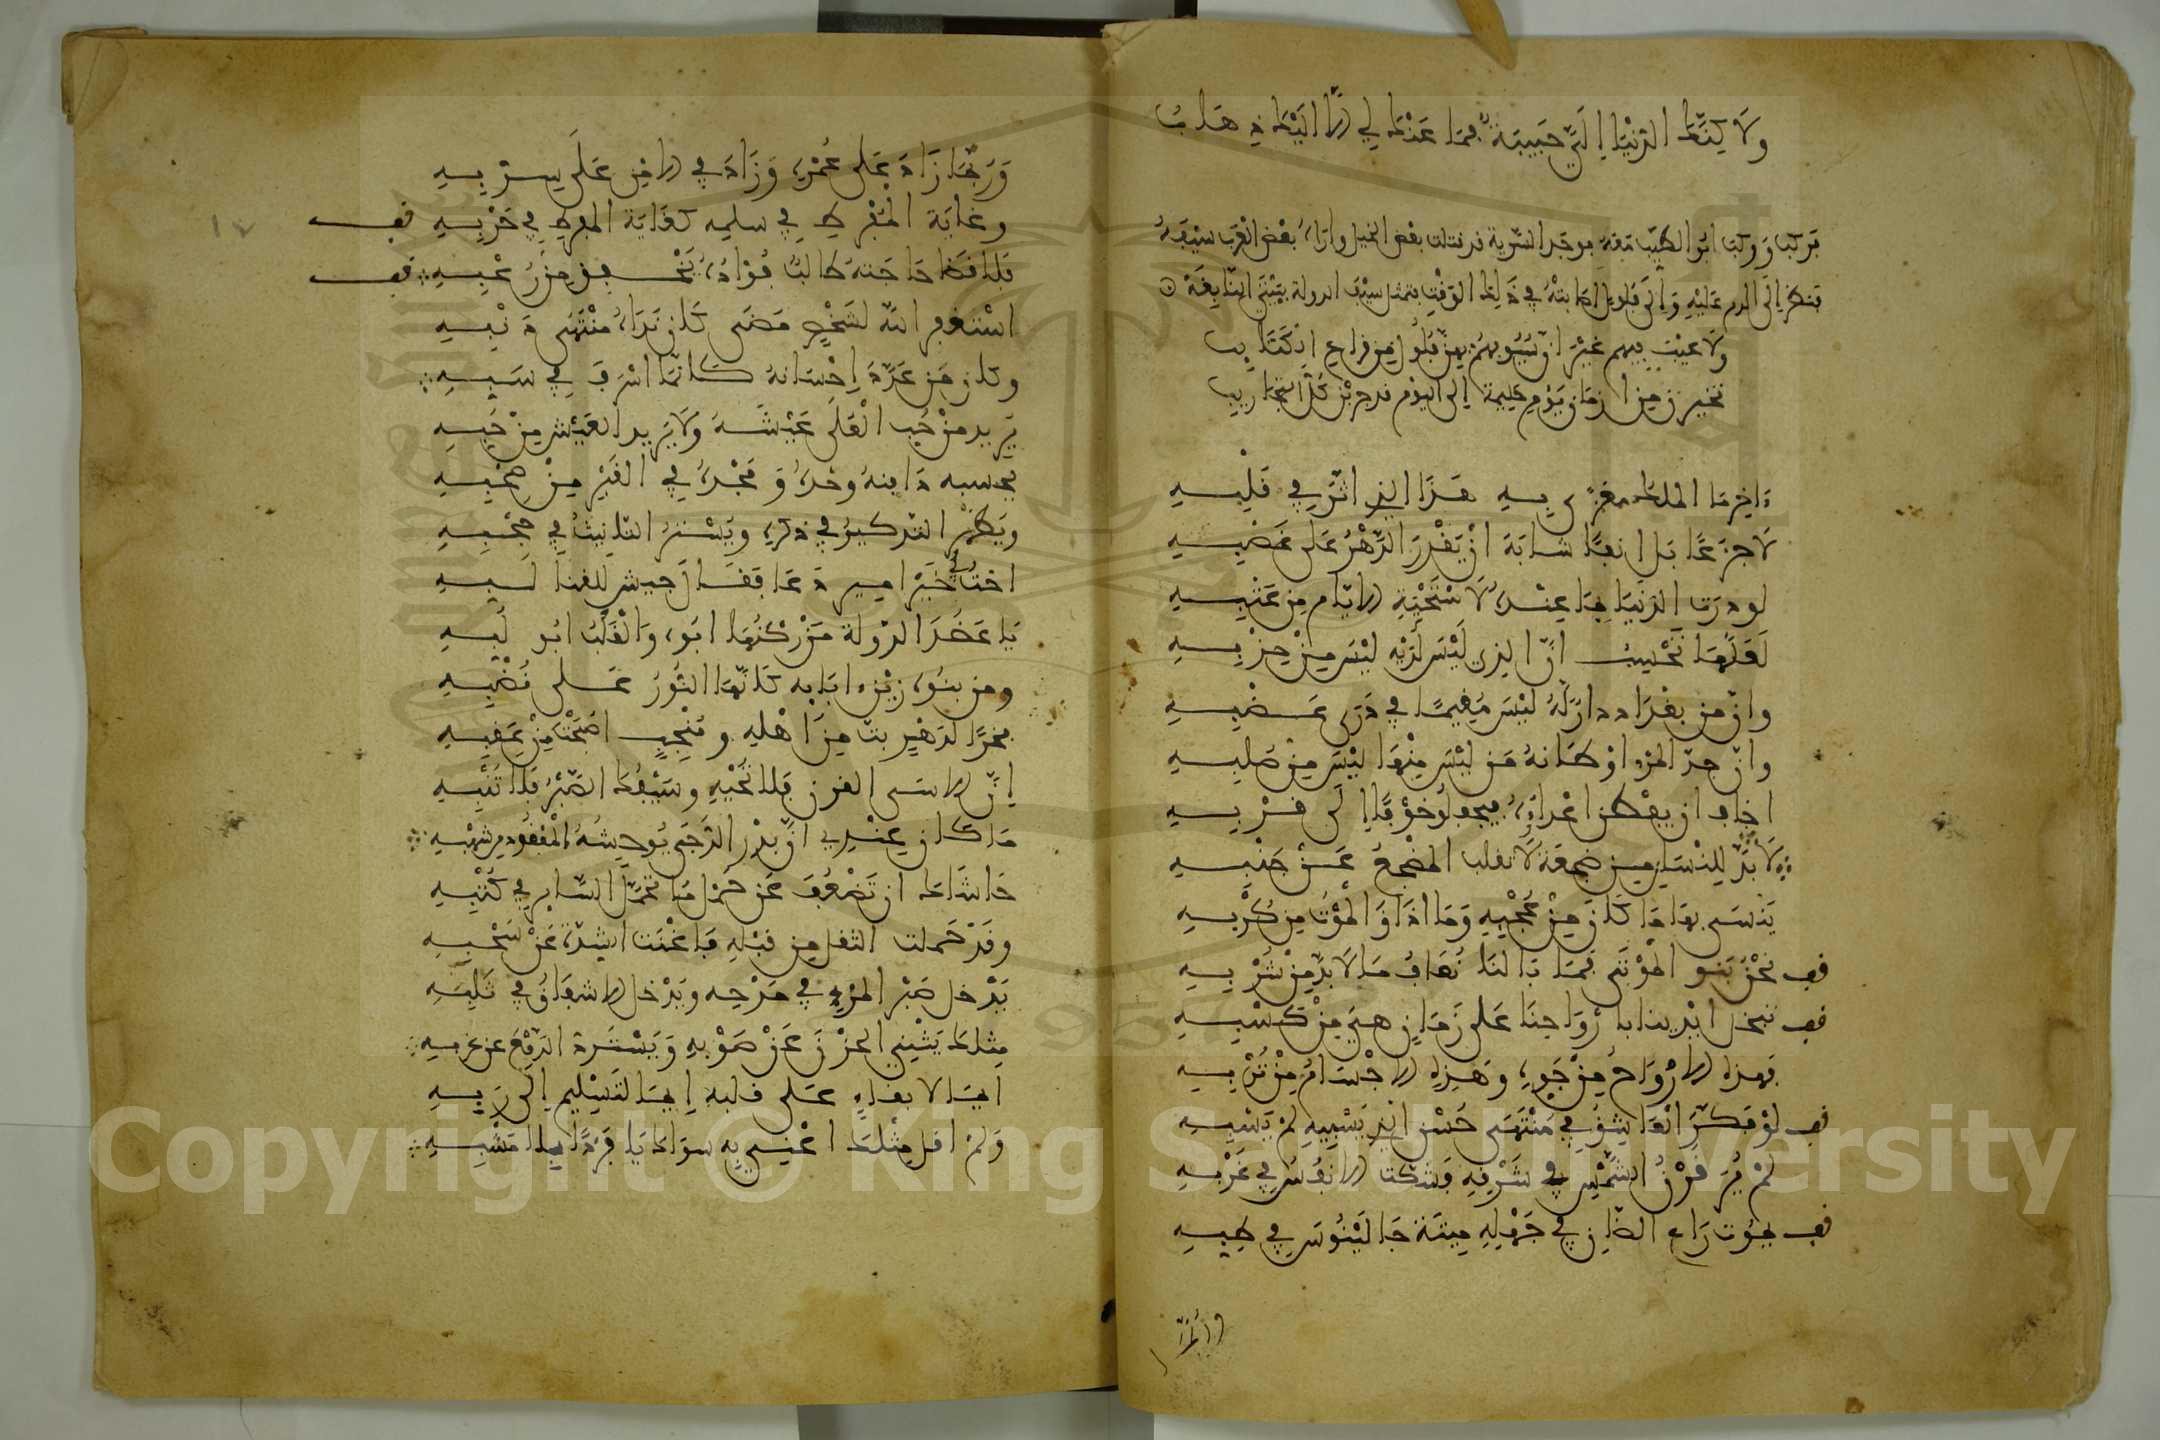 ولاكنك الدنيا إلي حبيبة فما عنك لي الا اليك ذهاب
فركب وركب ابو الطيب معه فوجد السرية قد قتلت بعض الخيل واراه بعض العرب سيفه
فنظر إلى الدم عليه وإلى فلول اصابته في ذلك الوقت فتمثل سيف الدولة ببيتي النابغة
ولا عيب فيهم غير ان سيوفهم بهن فلول من قراع الكتايب
تخيرن من ازمان يوم حليمة إلى اليوم قد جربن كل التجارب
ءاخر ما الملك معزى به هذا الذي اثر في قلبه
لا جزعا بل انفا شابه ان يقدر الدهر على غصبه
لو درت الدنيا بما عنده لاستحيت الايام من عتبه
لعلها تحسب ان الذي ليس لديه ليس من حزبه
وان من بغداد دار له ليس مقيما في ذرى عضبه
وان جد المرء اوطانه من ليس منها ليس من صلبه
اخاف ان يفطن اعداؤه فيجفلوا خوفا إلى قربه
لا بد للانسان من ضجعة لا تقلب المضجع عن جنبه
ينسى بها ما كان من عجبه وما اذاق الموت من كربه
قف نحن بنو الموتى فما بالنا نعاف ما لا بد من شربه
قف تبخل ايدينا بارواحنا على زمان هي من كسبه
فهذه الارواح من جوه وهذه الاجسام من تربه
قف لو فكر العاشق في منتهى حسن الذي يسبيه لم يسبه
لم ير قرن الشمس في شرقه فشكت الانفس في غربه
قف يموت راعي الضان في جهله ميتة جالينوس في طبه
وربما زاد على عمره وزاد في الامن على سربه
وغاية المفرط في سلمه كغاية المفرط في حربه قف
فلا قضا حاجته طالب فؤاده يخفق من رعبه قف
استغفر الله لشخص مضى كان نداه منتهى ذنبه
وكان من عدد إحسانه كانما اسرف في سبه
يريد من حب العلى عيشه ولا يريد العيش من حبه
يحسبه دافنه وحده ومجده في القبر من صحبه
ويظهر التذكير في ذكره ويستر التانيث في حجبه
اخت ابي خير امير دعا فقال جيش للقنا لبه
يا عضد الدولة من ركنها ابوه والقلب ابو لبه
ومن بنوه زين ءابايه كانها النور على قضبه
فخرا لدهر بت من اهله ومنجب اصبحت من عقبه
إن الاسى القرن فلا تحيه وسيفك الصبر فلا تنبه
ما كان عندي ان بدر الدجى يوحشه المفقود من شهبه
حاشاك ان تضعف عن حمل ما تحمل الساير في كتبه
وقد حملت الثقل من قبله فاغنت الشدة عن سحبه
يدخل صبر المرء في مدحه ويدخل الاشفاق في ثلبه
مثلك يثني الحزن عن صوبه ويسترد الدمع عن غربه
ايما لابقاء على فضله إيما لتسليم إلى ربه
ولم اقل مثلك اعني به سواك يا فردا بلا مشبه